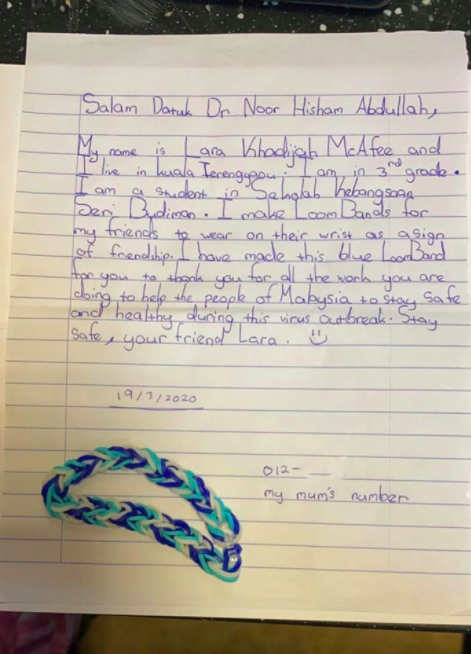 Salam Datuk Dr Noor Hisham Abdullah,
My name is Lara Khadijah McAfee and
I live in kuala Terengganu. I am in 3rd grade.
I am a student in Sekolah Kebangsaan
Seri Budiman. I make Loom Bands for
my friends to wear on their wrist as a sign
of friendship. I have made this blue Loom Band
for you to thank you for all the work you are
doing to help the people of Malaysia to stay safe
and healthy during this virus outbreak. Stay
safe, your friend Lara.
19/3/2020
012-
my mum's number